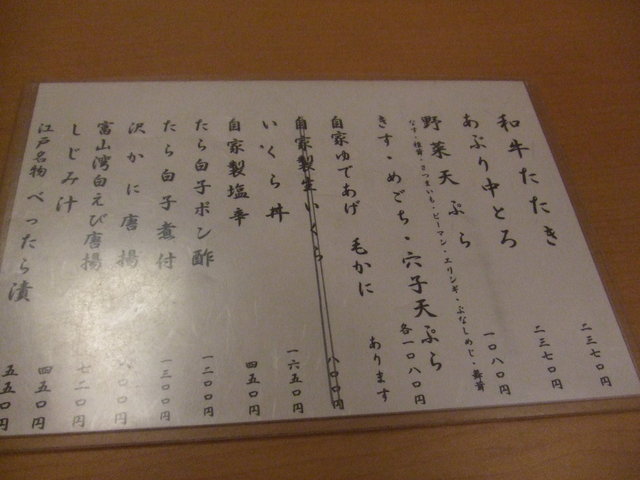 和牛たたき 二三七〇円
あぶり中とろ 二三七〇円
野菜天ぷら 一〇八〇円
なす・椎茸・さつまいも・ピーマン・エリンギ・ぶなしめじ・舞茸
きす・めごち・穴子天ぷら 各一〇八〇円
自家ゆであげ 毛かに あります
自家製生いくら 八〇〇円
いくら丼 一六五〇円
自家製塩辛 四五〇円
たら白子ポン酢 一二〇〇円
たら白子煮付 一三〇〇円
沢かに唐揚 八〇〇円
富山湾白えび唐揚 七二〇円
しじみ汁 四五〇円
江戸名物 べったら漬 五五〇円